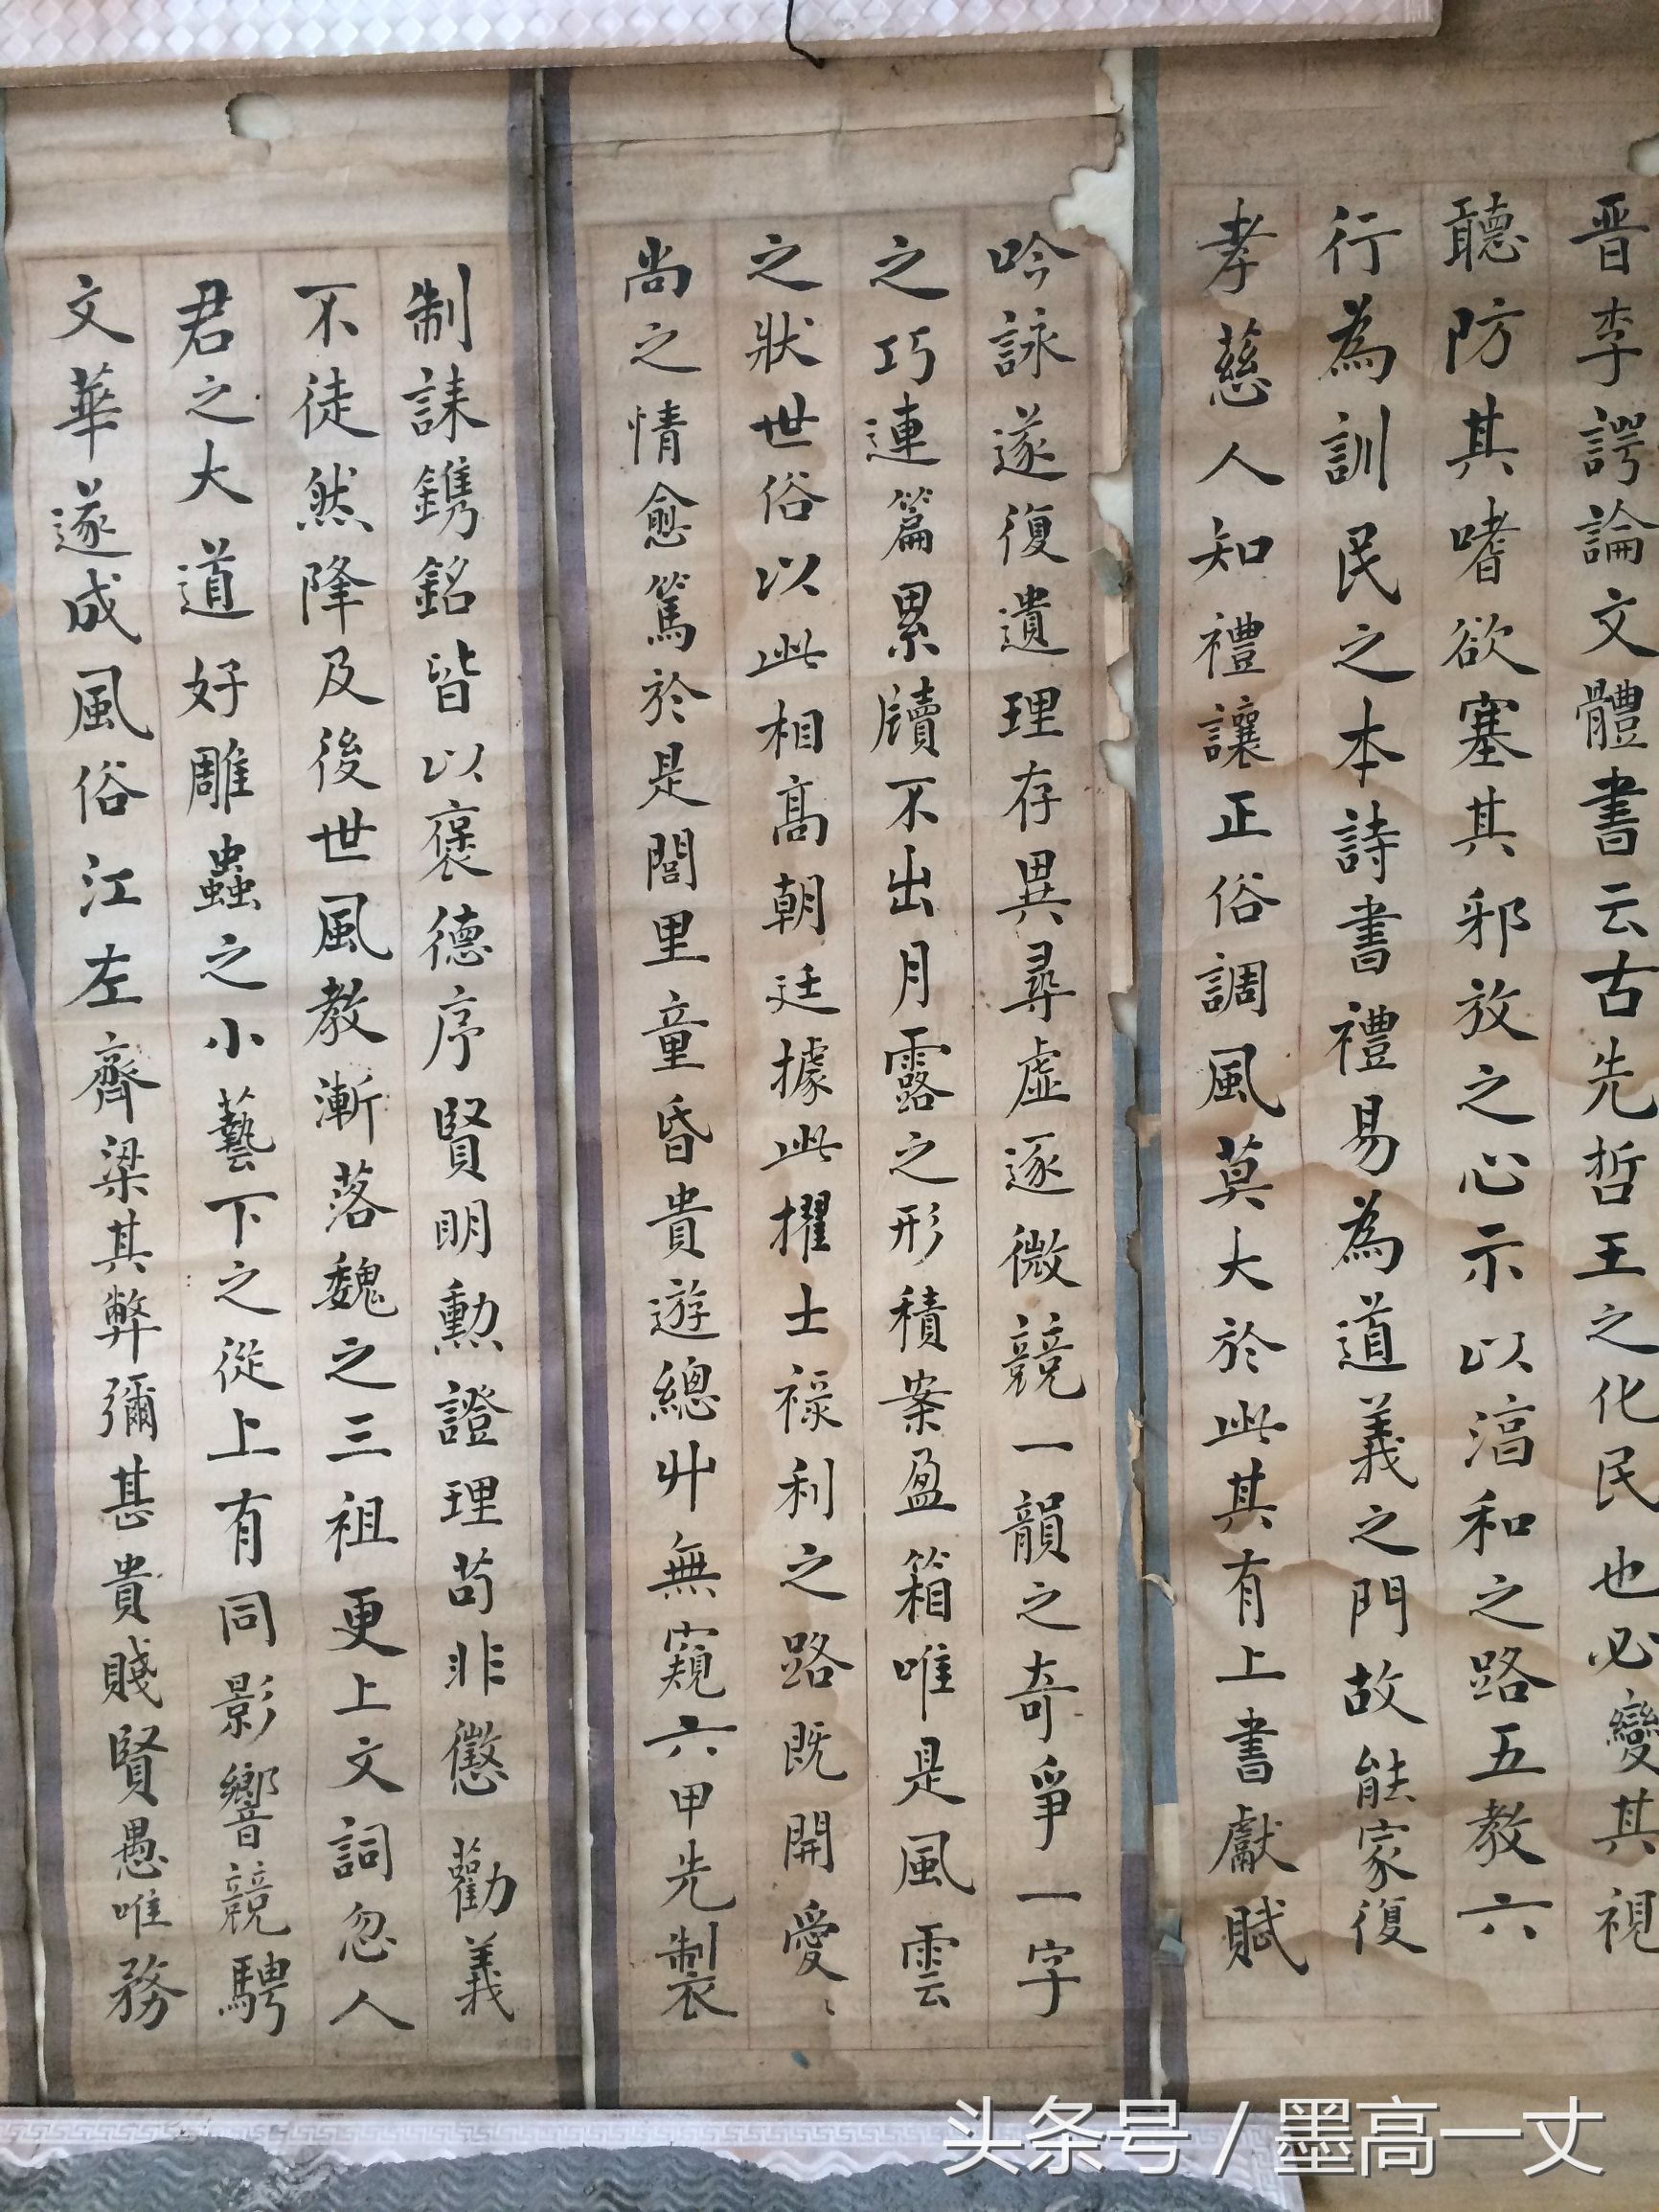 晋李諤論文體書云古先哲王之化民也必變其視
聽防其嗜欲塞其邪放之心示以湻和之路五教六
行為訓民之本詩書禮易為道義之門故能家復
孝慈人知禮讓正俗調風莫大於此其有上書獻賦
吟詠遂復遺理存異尋虛逐微競一韻之奇爭一字
之巧連篇累牘不出月露之形積案盈箱唯是風雲
之狀世俗以此相高朝廷據此擢士祿利之路既開愛
尚之情愈篤於是閭里童昏貴遊總丱無窺六甲先製
制誄鐫銘皆以褒德序賢明勳證理苟非懲勸義
不徒然降及後世風教漸落魏之三祖更上文詞忽人
君之大道好雕蟲之小藝下之從上有同影響競騁
文華遂成風俗江左齊梁其弊彌甚貴賤賢愚唯務
头条号 / 墨高一丈